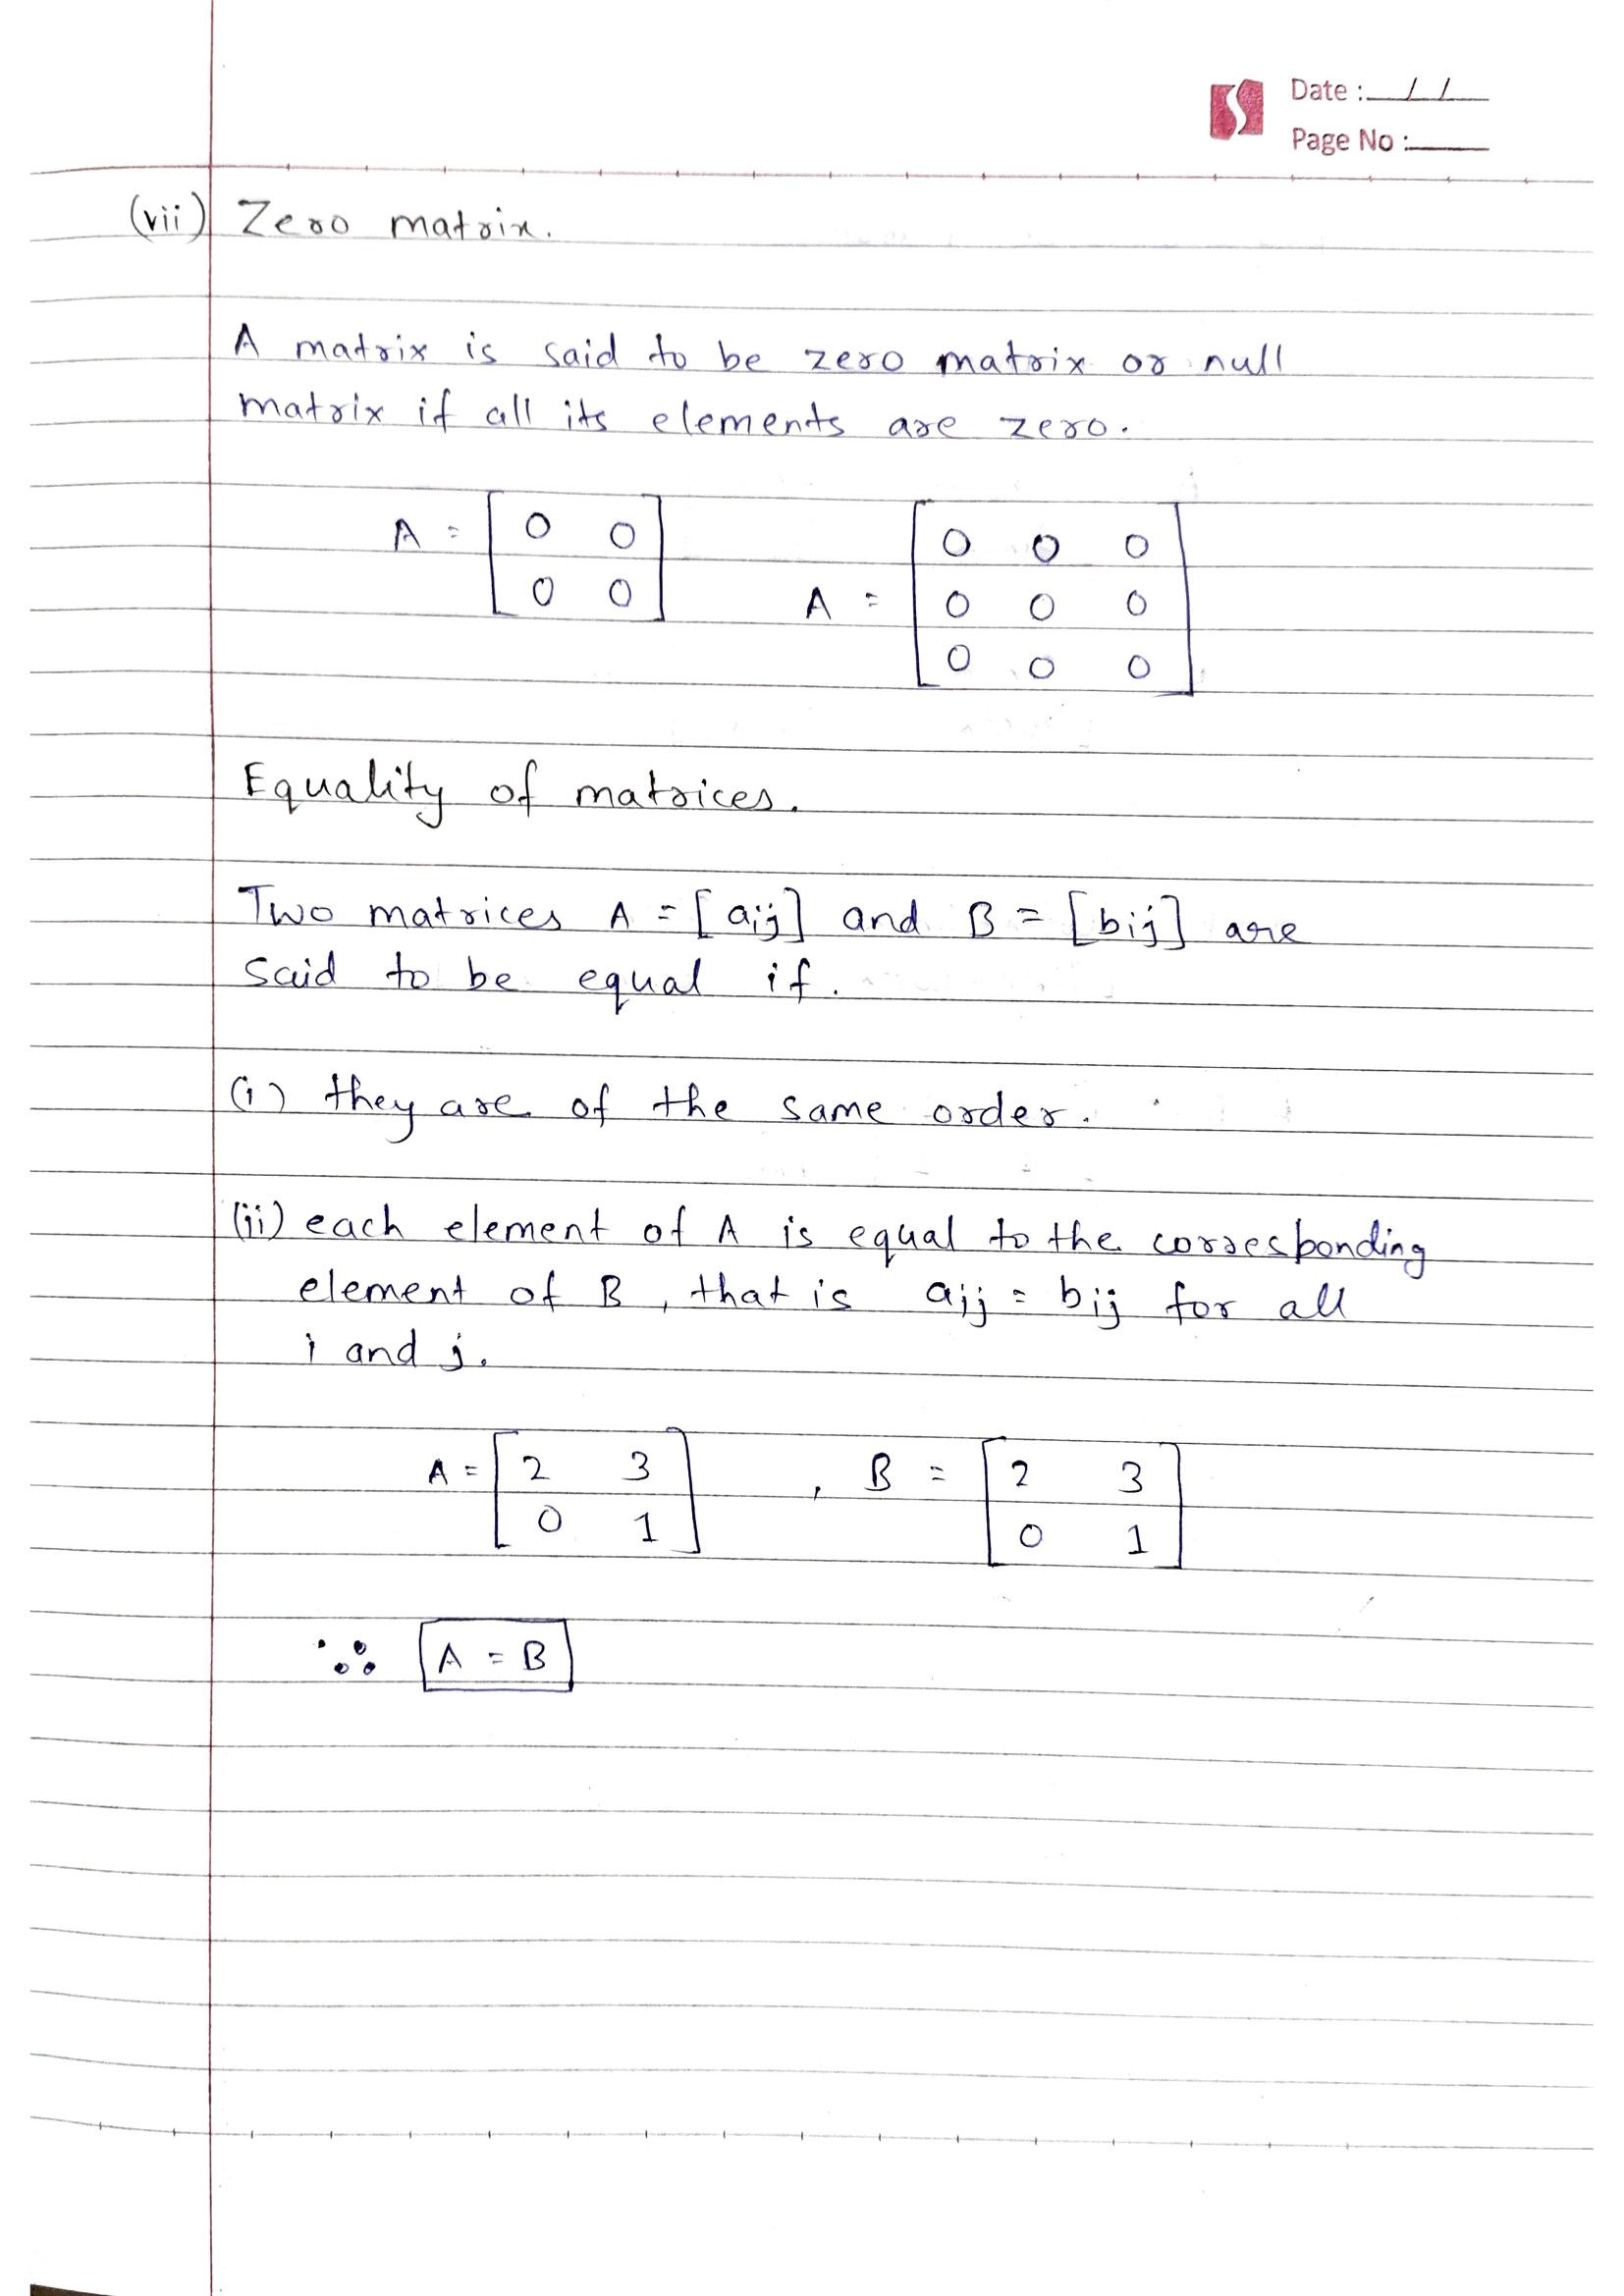 Date : / /
Page No :
(vii) Zero matrix.
A matrix is said to be zero matrix or null
matrix if all its elements are zero.
A = [ 0 0
0 0 ]
A = [ 0 0 0
0 0 0
0 0 0 ]
Equality of matrices.
Two matrices A = [aij] and B = [bij] are
said to be equal if.
(i) they are of the same order.
(ii) each element of A is equal to the corresponding
element of B, that is aij = bij for all
i and j.
A = [ 2 3
0 1 ]
, B = [ 2 3
0 1 ]
∴ A = B